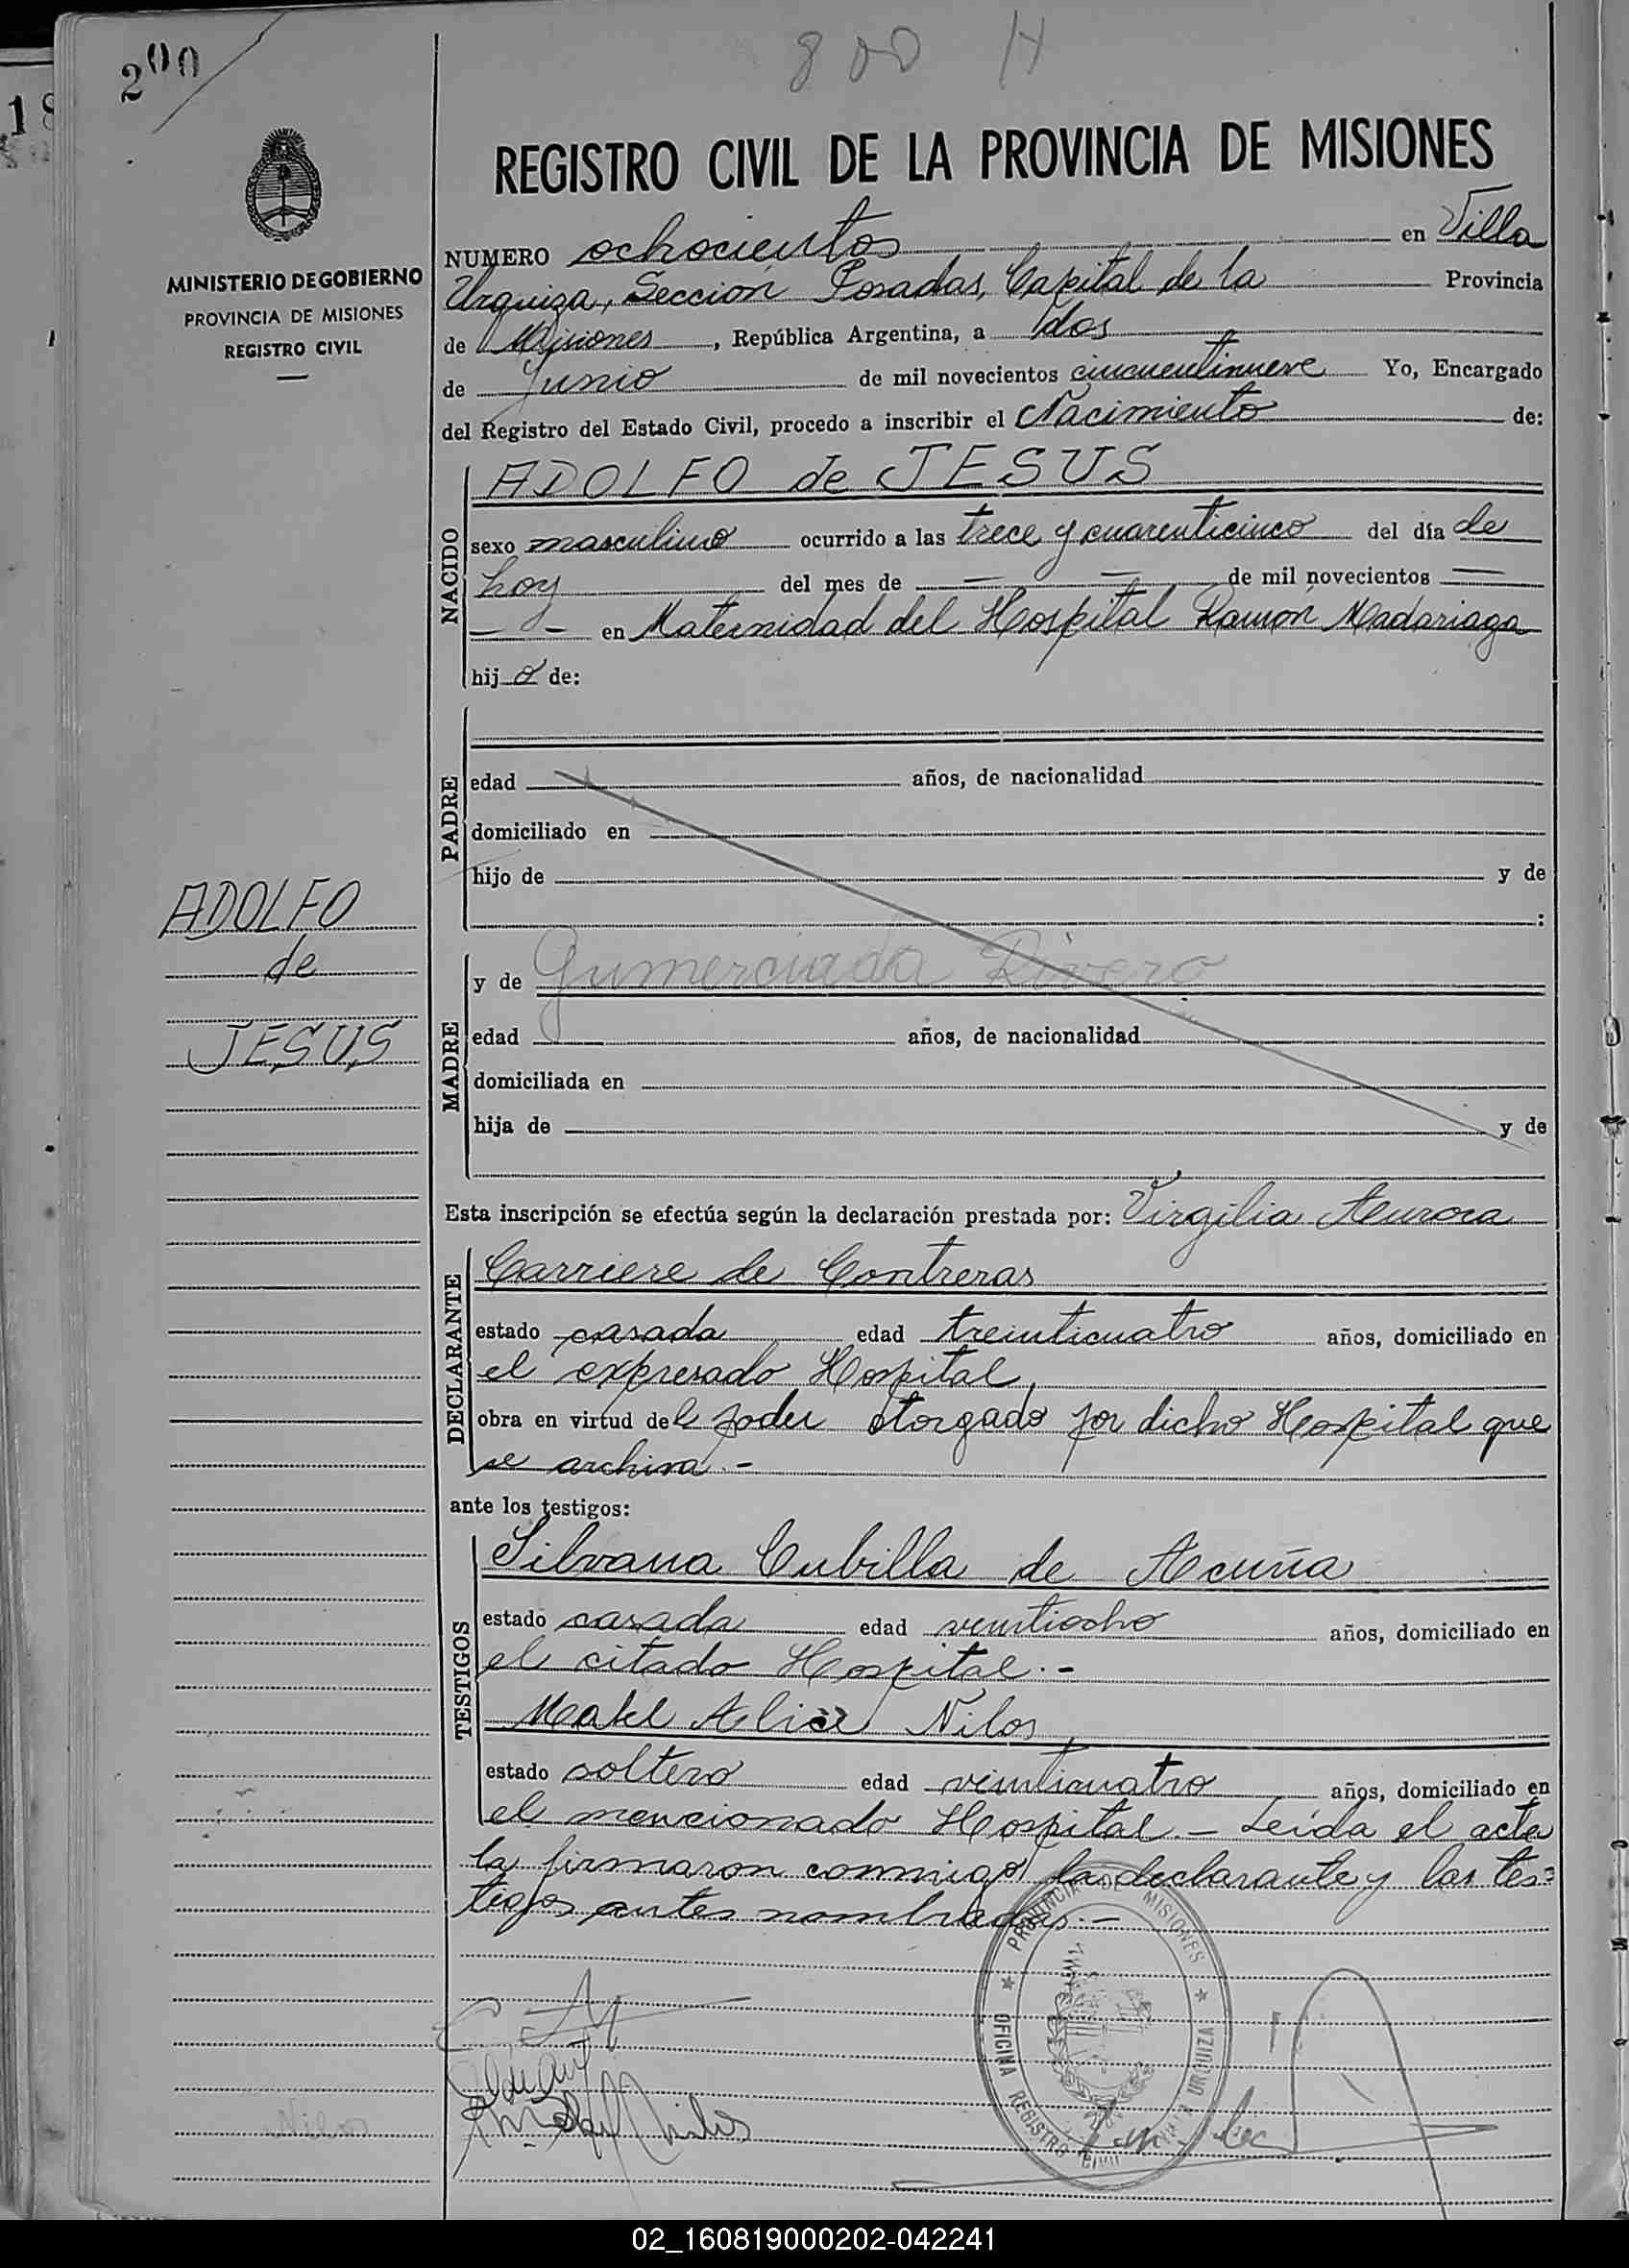 200
18
800 H
MINISTERIO DE GOBIERNO
PROVINCIA DE MISIONES
REGISTRO CIVIL
REGISTRO CIVIL DE LA PROVINCIA DE MISIONES
NUMERO ochocientos en Villa
Urquiza, Sección Posadas, Capital de la Provincia
de Misiones, República Argentina, a dos
de Junio de mil novecientos cincuentinueve Yo, Encargado
del Registro del Estado Civil, procedo a inscribir el Nacimiento de:
NACIDO
ADOLFO de JESUS
sexo masculino ocurrido a las trece y cuarenticinco del día de
hoy del mes de — — de mil novecientos —
— — en Maternidad del Hospital Ramón Madariaga
hijo de:
PADRE
edad años, de nacionalidad
domiciliado en
hijo de y de
:
ADOLFO
de
JESUS
MADRE
y de Gumercinada Rivero
edad años, de nacionalidad
domiciliada en
hija de y de
Esta inscripción se efectúa según la declaración prestada por: Virgilia Aurora
DECLARANTE
Carriere de Contreras
estado casada edad treinticuatro años, domiciliado en
el expresado Hospital,
obra en virtud del poder otorgado por dicho Hospital que
se archiva.-
ante los testigos:
TESTIGOS
Silvana Cubilla de Acuña
estado casada edad veintiocho años, domiciliado en
el citado Hospital.-
Mabel Alice Nilos
estado soltero edad veinticuatro años, domiciliado en
el mencionado Hospital.- Leída el acta
la firmaron conmigo la declarante y los tes=
tigos antes nombrados.-
PROVINCIA DE MISIONES
OFICINA REGISTRO CIVIL URQUIZA
02_160819000202-042241